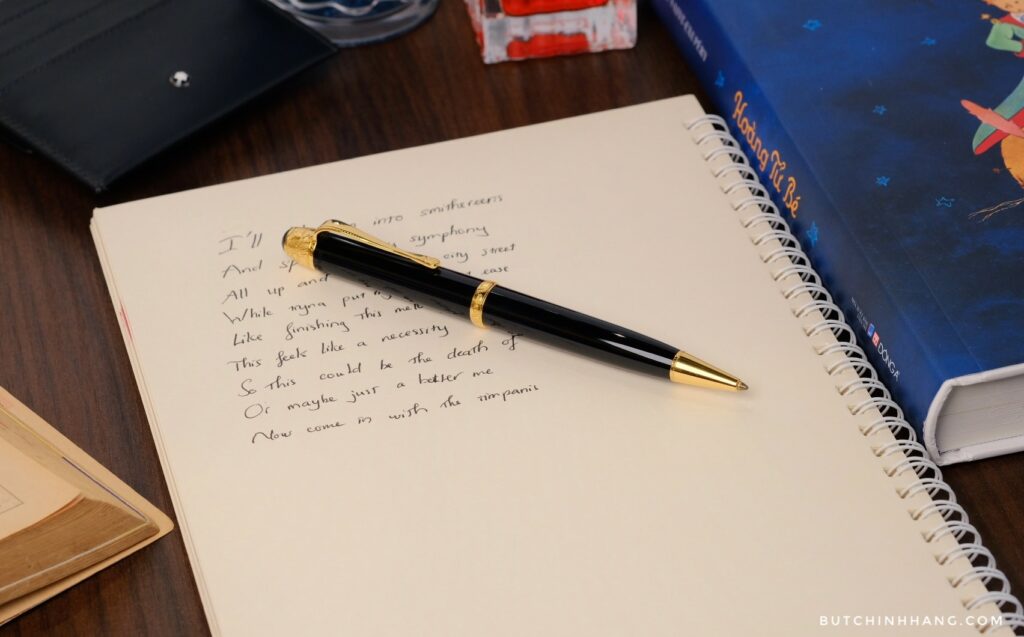 I'll into smithereens
And symphony
All up and city street
While tryna put my ease
Like finishing this
This feels like a necessity
So this could be the death of
Or maybe just a better me
Now come in with the timpanis
Hoàng Tử Bé
ĐÔNG A
BUTCHINHHANG.COM